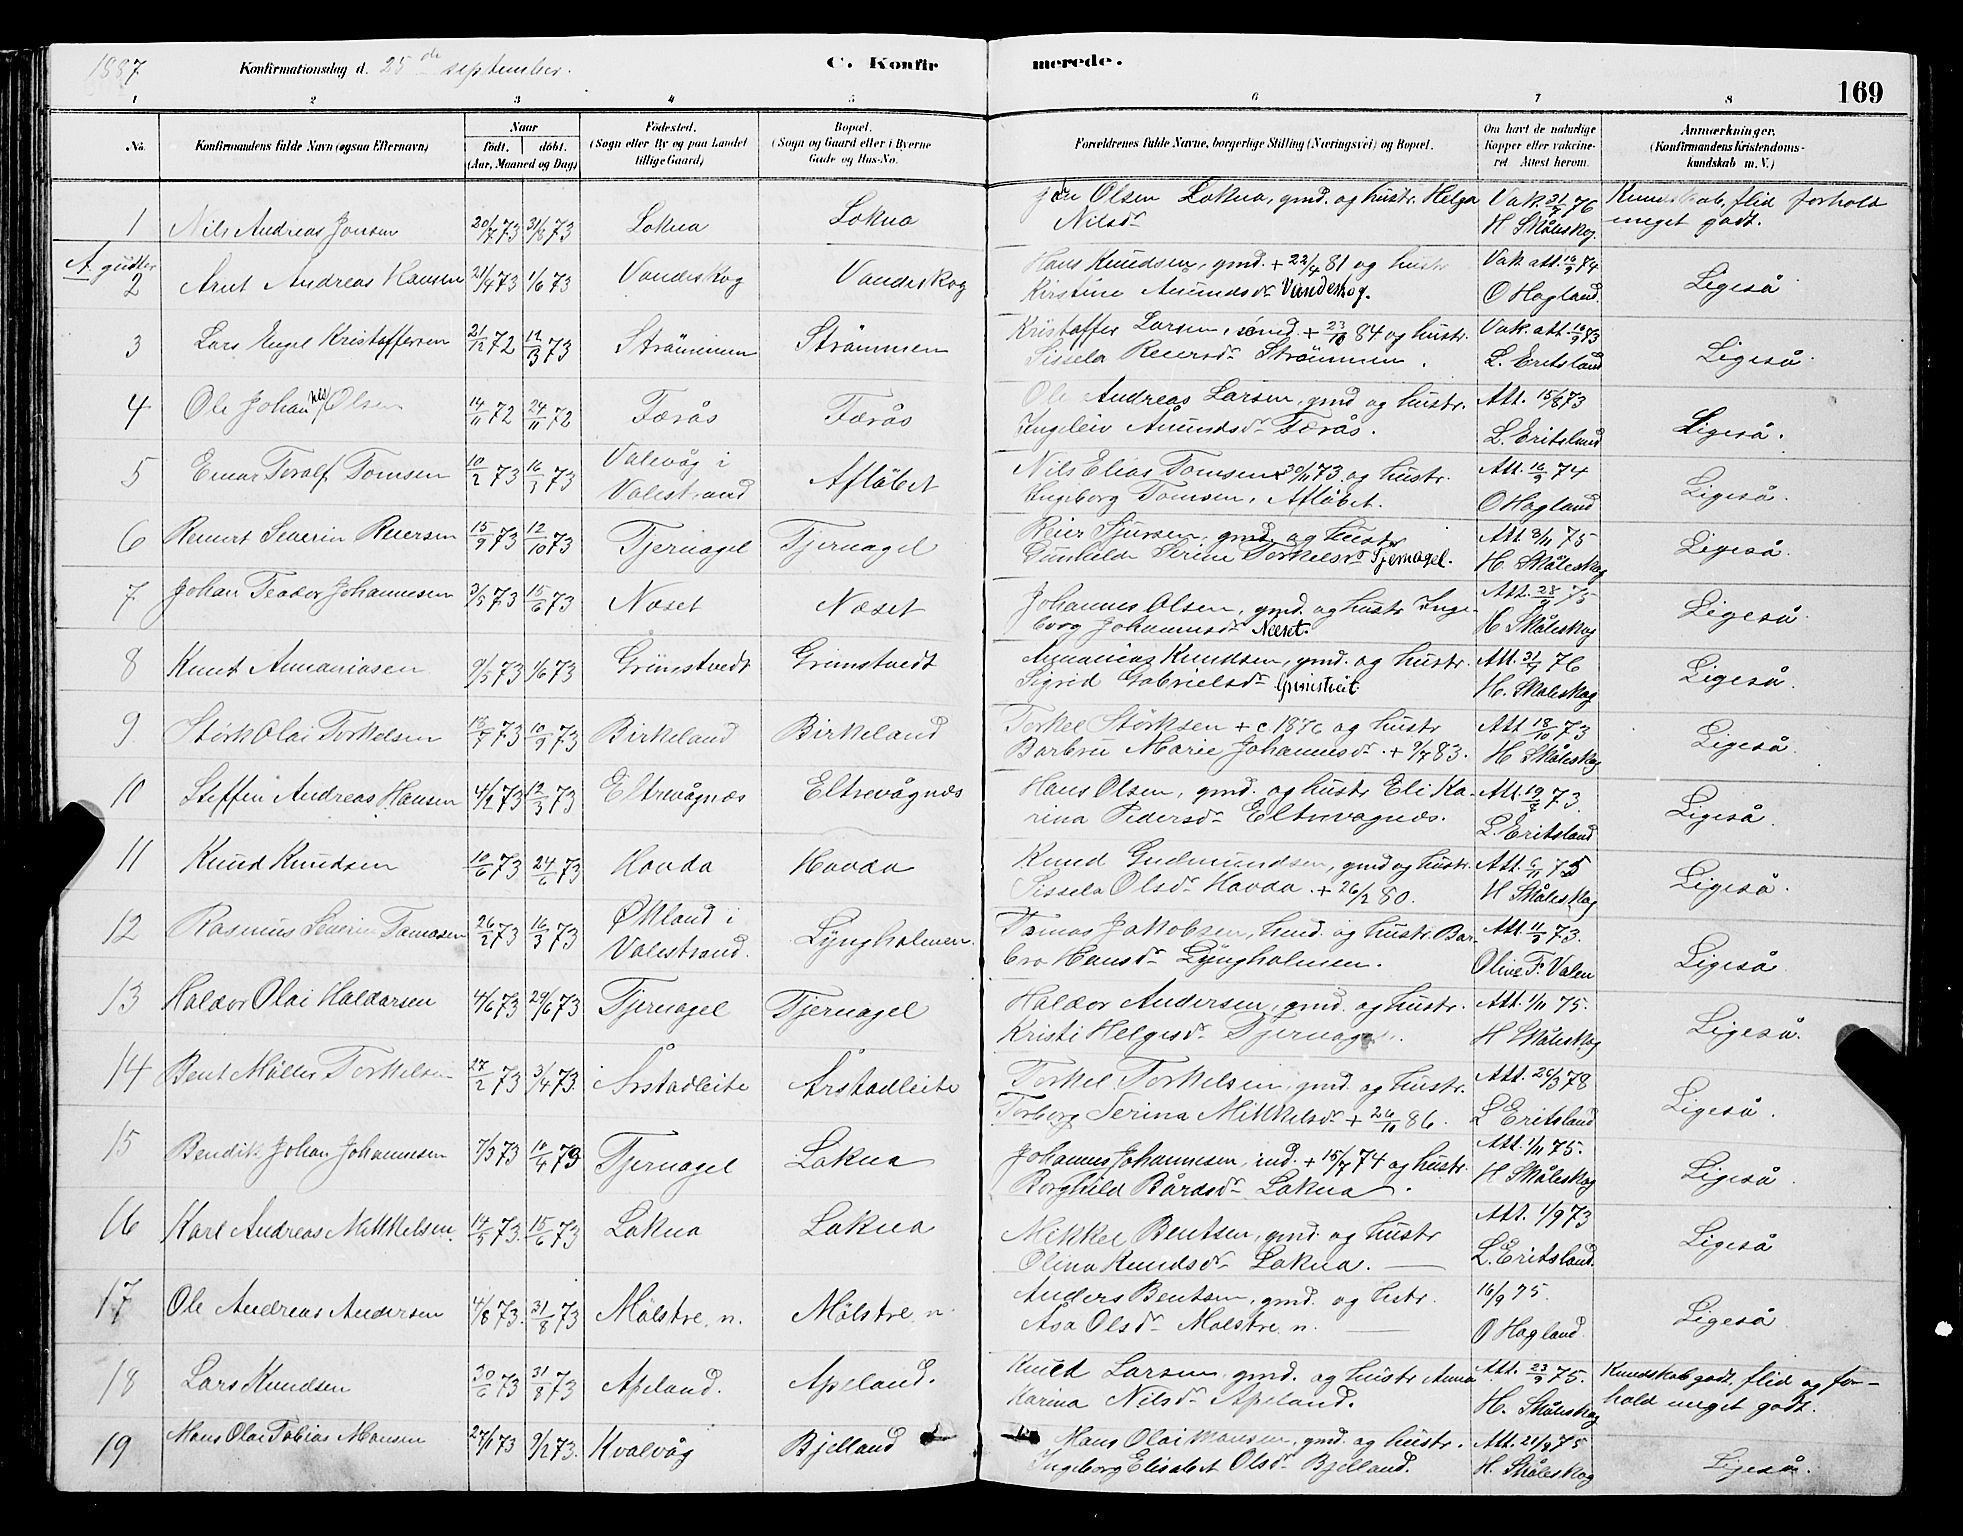 1887 Konfirmationsdag d. 25de september. C. Konfirmerede. 169
1 2 3 4 5 6 7 8
No. Konfirmandens fulde Navn (ogsaa Efternavn) Naar født. døbt. (Aar, Maaned og Dag) Fødested. (Sogn eller By og paa Landet tillige Gaard) Bopæl. (Sogn og Gaard eller i Byerne Gade og Hus-No. Forældrenes fulde Navne, borgerlige Stilling (Næringsvei) og Bopæl. Om havt de naturlige Kopper eller vakcineret Attest herom. Anmærkninger. (Konfirmandens Kristendomskundskab m. V.)
1 Nils Andreas Jonsen 20/7 73 31/8 73 Lokna Lokna Jon Olsen Lokna, gmd. og hustr. Helga Vak. 21/9 76 Kundskab, flid forhold
Nilsdr H. Skåleskog meget godt.
2 Arnt Andreas Hansen 21/4 73 1/6 73 Vandeskog Vandeskog Hans Knudsen, gmd. + 22/4 81 og hustr Vak. att. 16/9 74 Ligeså
Kirstine Amundsdr Vandeskog. O Hagland
3 Lars Engel Kristoffersen 21/12 72 12/3 73 Strømmen Strømmen Kristoffer Larsen, gmd. + 23/10 84 og hustr. Vak. att. 10/9 83 Ligeså
Sissela Reiersdr Strømmen. L. Eritsland
4 Ole Johannes Olsen 14/11 72 24/11 72 Færås Færås Ole Andreas Larsen, gmd og hustr. Att. 15/8 73 Ligeså.
Ingeleiv Amundsdr Færås. L. Eritsland
5 Einar Toralf Tomsen 10/2 73 16/3 73 Valevåg i Valestrand Afløbet Nils Elias Tomsen + 30/11 73 og hustr. Att. 16/9 74 Ligeså.
Ingeborg Tomsen, Afløbet. O Hagland
6 Reinert Severin Reiersen 15/9 73 12/10 73 Tjernagel Tjernagel Reier Sjursen, gmd og hustr Att 3/11 75 Ligeså.
Gunhilde Serine Torkelsdr Tjernagel. H. Skåleskog
7 Johan Teodor Johannesen 3/5 73 15/6 73 Næset Næset Johannes Olsen, gmd. og hustr Inge- Att. 28/9 75 Ligeså.
borg Johannesdr Næset. H Skåleskog
8 Knut Annaniasen 9/5 73 1/6 73 Grimstvedt Grimstvedt Annanias Knudsen, gmd. og hustr. Att. 21/9 76 Ligeså.
Sigrid Gabrielsdr Grimstveit H. Skåleskog
9 Størk Olai Torkelsen 13/7 73 10/9 73 Birkeland Birkeland Torkel Størksen + c 1876 og hustr Att 18/10 73 Ligeså.
Barbru Marie Johannesdr. + 9/7 83. H Skåleskog
10 Steffen Andreas Hansen 4/2 73 12/3 73 Eltrevågnæs Eltrevågnæs Hans Olsen, gmd. og hustr Eli Ka- Att. 19/7 73. Ligeså.
rina Pedersdr Eltrevagnæs. L. Eritsland
11 Knud Knudsen 10/6 73 24/6 73 Hovda Hovda Knud Gudmundsen, gmd og hustr. Att. 6/11 75 Ligeså.
Sissela Olsdr Hovda. + 26/2 80. H Skåleskog
12 Rasmus Severin Tomasen 26/2 73 16/3 73 Økland i Valestrand. Lyngholmen. Tomas Jakobsen, husd. og hustr. Bar- Att. 11/9 73. Ligeså.
bro Hansdr Lyngholmen. Oline F. Valen
13 Haldor Olai Haldorsen 4/6 73 29/6 73 Tjernagel Tjernagel Haldor Andersen, gmd. og hustr. Att. 1/11 75. Ligeså.
Kristi Helgesdr Tjernagel. H Skåleskog
14 Bent Møller Torkelsen 27/2 73 3/4 73 Årstadleite Årstadleite Torkel Torkelsen, gmd. og hustr. Att. 26/9 78 Ligeså.
Torborg Serina Mikkelsdr + 26/10 86. L Eritsland
15 Bendik Johan Johannesen 7/3 73 10/4 73 Tjernagel Lokna Johannes Johannesen, ind. + 15/7 74 og hustr. Att. 1/11 75. Ligeså.
Borghild Bårdsdr Lokna. H Skåleskog
16 Karl Andreas Mikkelsen 14/5 73. 15/6 73 Lokna Lokna Mikkel Bentsen, gmd. og hustr Att. 1/9 73 Ligeså
Olina Knudsdr Lokna. L. Eritsland.
17 Ole Andreas Andersen 4/8 73. 31/8 73 Mølstre, n. Mølstre n. Anders Bentsen, gmd. og hstr. 16/9 75. Ligeså
Åsa Olsdr Mølstre n. O Hagland.
18 Lars Knudsen 30/6 73 31/8 73 Apeland. Apeland. Knud Larsen, gmd. og hustr Anna Att. 23/9 75. Kundskab godt, flid og for-
Karina Nilsdr Apeland. H. Skåleskog hold meget godt.
19 Mons Olai Tobias Monsen 27/1 73 9/2 73. Kvalvåg Bjelland Mons Olai Monsen, gmd. og hustr. Att. 21/9 75 Ligeså.
Ingeborg Elisabet Olsdr Bjelland. H. Skåleskog